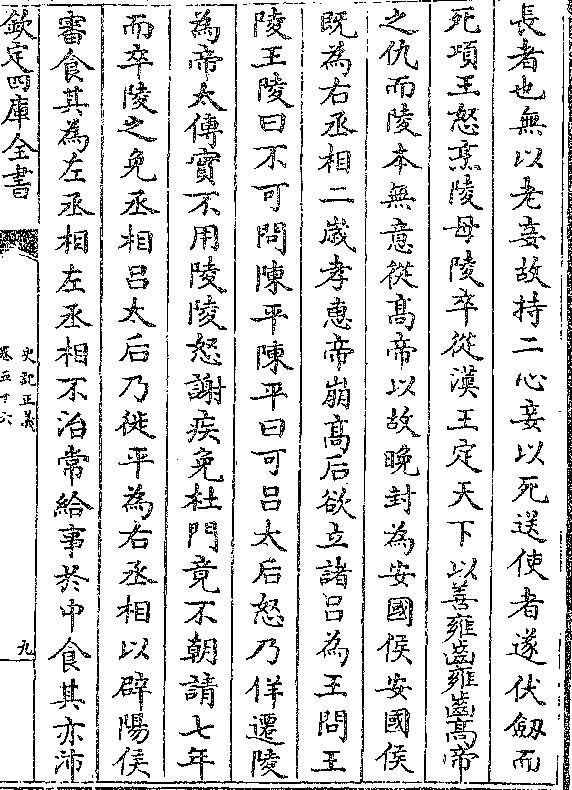 長者也無以老妾故持二心妾以死送使者遂伏劔而
死項王怒烹陵母陵卒從漢王定天下以善雍齒雍齒髙帝
之仇而陵本無意從髙帝以故晚封為安國侯安國侯
既為右丞相二歳孝惠帝崩髙后欲立諸吕為王問王
陵王陵曰不可問陳平陳平曰可吕太后怒乃佯遷陵
為帝太傅實不用陵陵怒謝疾免杜門竟不朝請七年
而卒陵之免丞相吕太后乃徙平為右丞相以辟陽侯
審食其為左丞相左丞相不治常給事於中食其亦沛
欽定四庫全書
史記正義
卷五十六
九